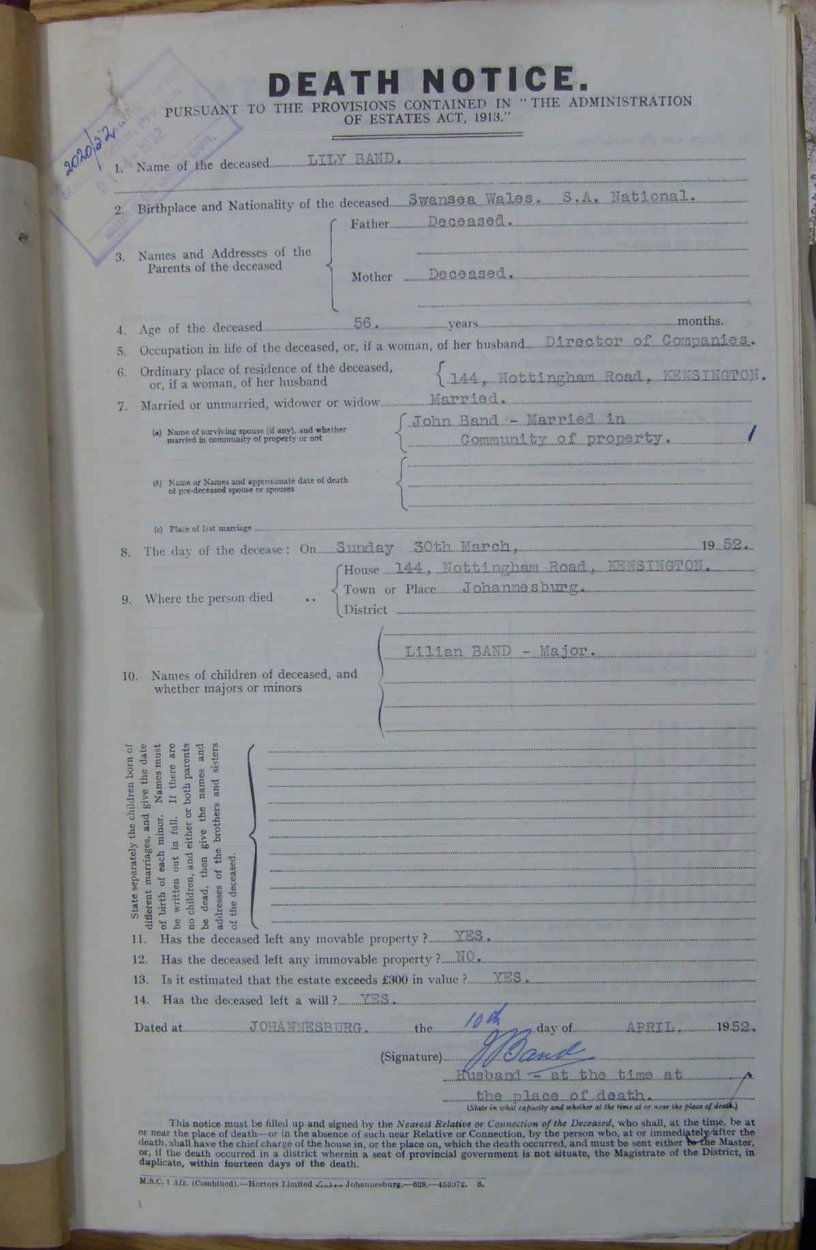 DEATH NOTICE.
PURSUANT TO THE PROVISIONS CONTAINED IN "THE ADMINISTRATION
OF ESTATES ACT, 1913."
2020/52
1. Name of the deceased LILY BAND.
2. Birthplace and Nationality of the deceased Swansea Wales. S.A. National.
3. Names and Addresses of the
Parents of the deceased
Father Deceased.
Mother Deceased.
4. Age of the deceased 56. years months.
5. Occupation in life of the deceased, or, if a woman, of her husband Director of Companies.
6. Ordinary place of residence of the deceased,
or, if a woman, of her husband
144, Nottingham Road, KENSINGTON.
7. Married or unmarried, widower or widow Married.
(a) Name of surviving spouse (if any), and whether
married in community of property or not
John Band - Married in
Community of property.
(b) Name or Names and approximate date of death
of pre-deceased spouse or spouses
(c) Place of last marriage
8. The day of the decease: On Sunday 30th March, 1952.
9. Where the person died ..
House 144, Nottingham Road, KENSINGTON.
Town or Place Johannesburg.
District
10. Names of children of deceased, and
whether majors or minors
Lilian BAND - Major.
State separately the children born of
different marriages, and give the date
of birth of each minor. Names must
be written out in full. If there are
no children, and either or both parents
be dead, then give the names and
addresses of the brothers and sisters
of the deceased.
11. Has the deceased left any movable property? YES.
12. Has the deceased left any immovable property? NO.
13. Is it estimated that the estate exceeds £300 in value? YES.
14. Has the deceased left a will? YES.
Dated at JOHANNESBURG. the 10th day of APRIL, 1952.
(Signature) J Band
Husband - at the time at
the place of death.
(State in what capacity and whether at the time at or near the place of death.)
This notice must be filled up and signed by the Nearest Relative or Connection of the Deceased, who shall, at the time, be at
or near the place of death—or in the absence of such near Relative or Connection, by the person who, at or immediately after the
death, shall have the chief charge of the house in, or the place on, which the death occurred, and must be sent either to the Master,
or, if the death occurred in a district wherein a seat of provincial government is not situate, the Magistrate of the District, in
duplicate, within fourteen days of the death.
M.S.C. 1 Afr. (Combined).—Hortors Limited Johannesburg.—628.—453972. S.